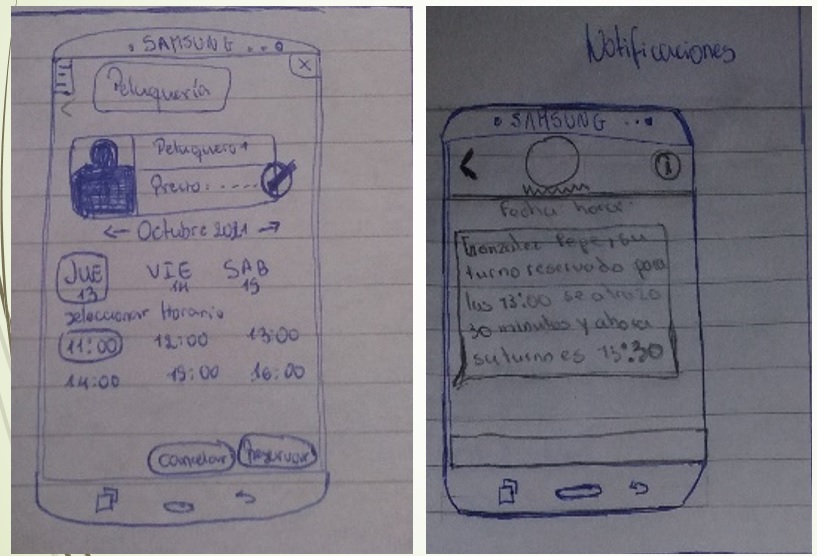 SAMSUNG
X
Peluquería
Peluquero 1
Precio: ----
<- Octubre 2021 ->
JUE VIE SAB
13 14 15
seleccionar Horario
11:00 12:00 13:00
14:00 15:00 16:00
cancelar Reservar
Notificaciones
SAMSUNG
i
Fecha hora:
Gonzalez Pepe, su
turno reservado para
las 13:00 se atrazo
30 minutos y ahora
su turno es 13:30